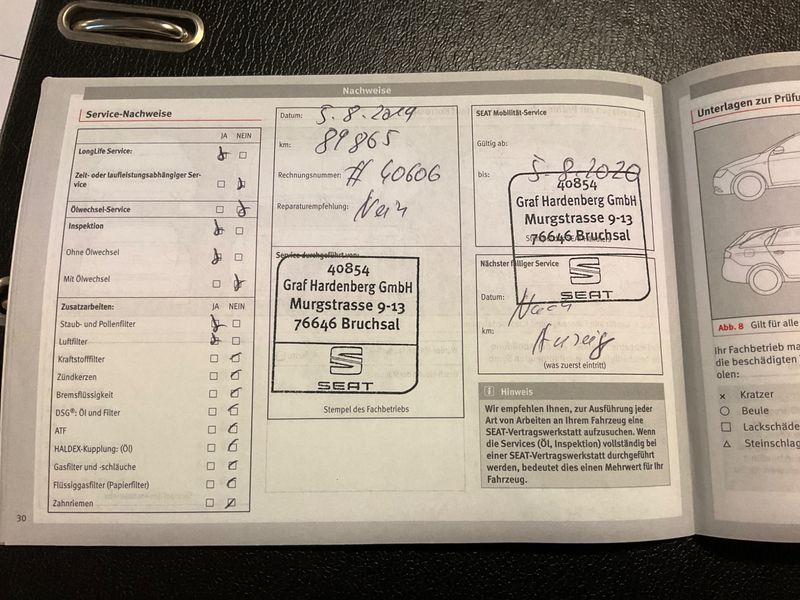 Nachweise
Service-Nachweise
JA NEIN
LongLife Service:
Zeit- oder laufleistungsabhängiger Ser-
vice
Ölwechsel-Service
Inspektion
Ohne Ölwechsel
Mit Ölwechsel
Zusatzarbeiten: JA NEIN
Staub- und Pollenfilter
Luftfilter
Kraftstofffilter
Zündkerzen
Bremsflüssigkeit
DSG®: Öl und Filter
ATF
HALDEX-Kupplung: (Öl)
Gasfilter und -schläuche
Flüssiggasfilter (Papierfilter)
Zahnriemen
30
Datum: 5.8.2019
km: 89865
Rechnungsnummer: # 40606
Reparaturempfehlung: Nein
Service durchgeführt von:
40854
Graf Hardenberg GmbH
Murgstrasse 9-13
76646 Bruchsal
SEAT
Stempel des Fachbetriebs
SEAT Mobilität-Service
Gültig ab:
bis: 5.8.2020
40854
Graf Hardenberg GmbH
Murgstrasse 9-13
76646 Bruchsal
SEAT
Nächster fälliger Service
Datum: Nach
km: Anzeig
(was zuerst eintritt)
i Hinweis
Wir empfehlen Ihnen, zur Ausführung jeder
Art von Arbeiten an Ihrem Fahrzeug eine
SEAT-Vertragswerkstatt aufzusuchen. Wenn
die Services (Öl, Inspektion) vollständig bei
einer SEAT-Vertragswerkstatt durchgeführt
werden, bedeutet dies einen Mehrwert für Ihr
Fahrzeug.
Unterlagen zur Prüfu
Abb. 8 Gilt für alle
Ihr Fachbetrieb ma
die beschädigten
olen:
× Kratzer
○ Beule
□ Lackschäde
△ Steinschlag